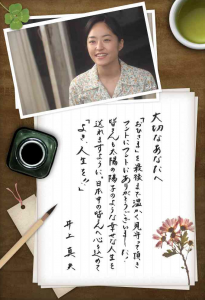 大切なあなたへ
「おひさま」を最後まで温かく見守って頂き
ほんとうにありがとうございました。
皆さんも太陽の陽子のような幸せな人生を
送れますように、日本中の皆さんへ心を込めて
「よき、人生を!!」
井上真央